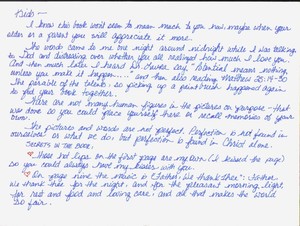 Kids-
I know this book won't seem to mean much to you now, maybe when your
older or a parent you will appreciate it more.
The words came to me one night around midnight while I was talking
to Dad and stressing over whether you all realized how much I love you.
And then much later I heard Dr. say, "Potential means nothing
unless you make it happen...." and then also reading Matthew 25:14-30
The parable of the talents, so picking up a paintbrush happened again
to put your book together.
There are not many human figures in the pictures on purpose - that
was done so you could place yourself there or recall memories of your
own.
The pictures and words are not perfect. Perfection is not found in
ourselves or what we do, but perfection is found in Christ alone.
Secrets in the book:
Those hot lips on the first page are my own (I kissed the page)
so you could always have my kisses with you.
On page nine the music is "Father, We Thank Thee": "Father
we thank thee for the night, and for the pleasant morning light
for rest and food and loving care, and all that makes the world
so fair.